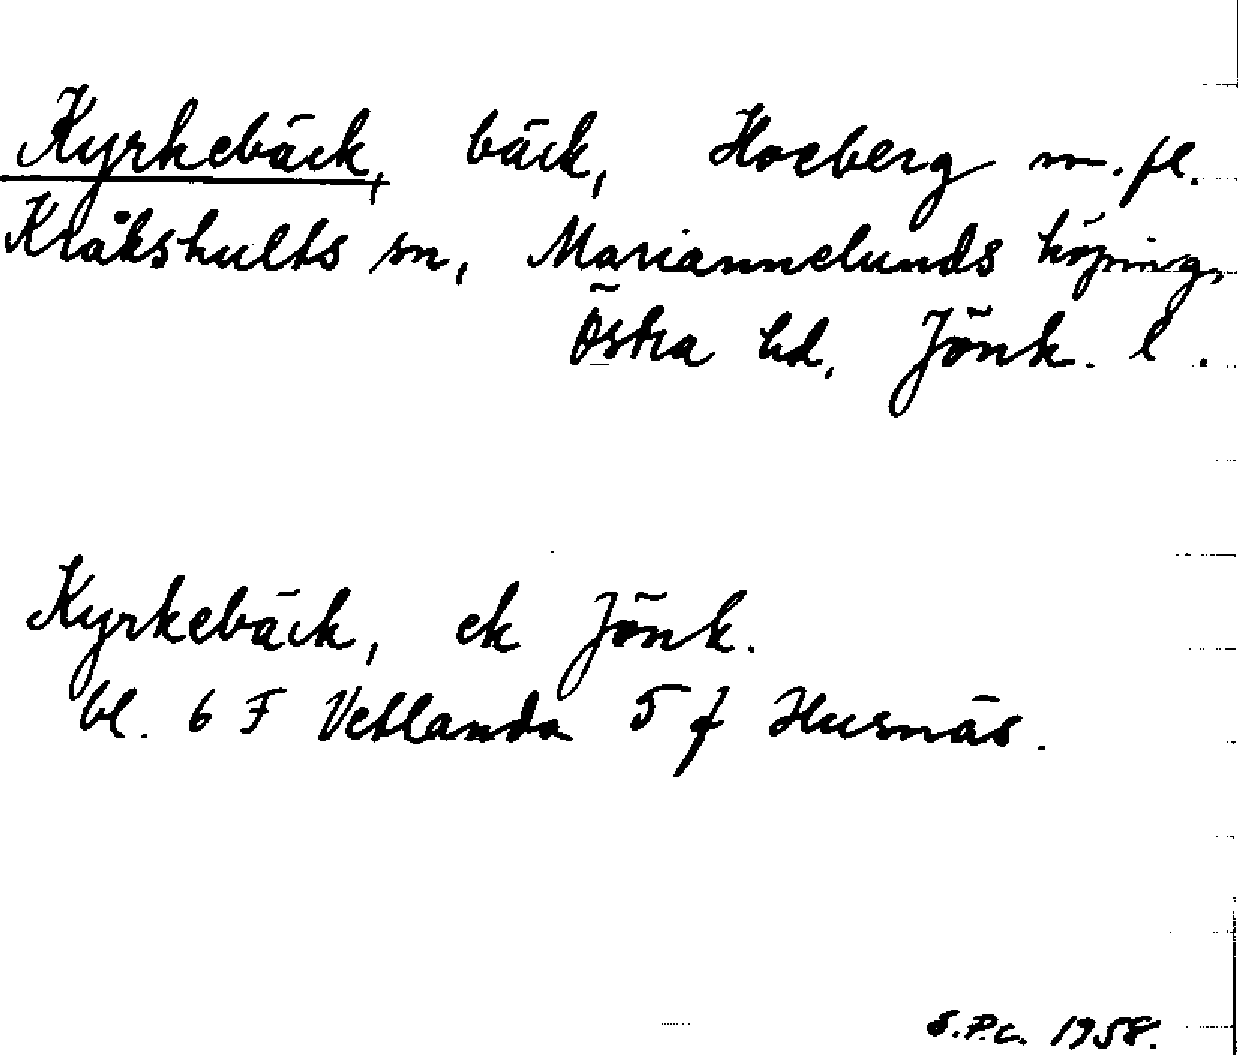 Kyrkebäck, bäck, Hoeberg m.fl.
Kråkshults sn, Mariannelunds köping,
Östra hd, Jönk. l.
Kyrkebäck, ek Jönk.
bl. 6 F Vetlanda 5 f Husnäs.
S.P.C. 1958.